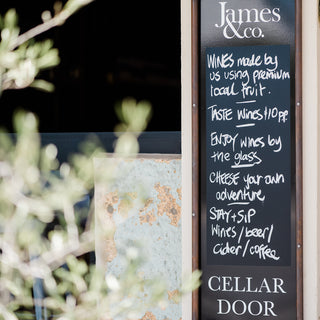 James
&co.
WINES made by
us using premium
local fruit.
TASTE wines $10pp
ENJOY wines by
the glass
CHEESE your own
adventure
STAY + SIP
Wines/beer/
cider/coffee
CELLAR
DOOR